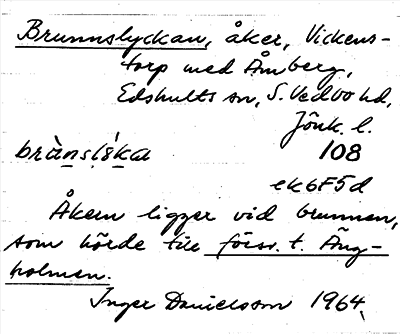 Brunnslyckan, åker, Vickens-
torp med Åmberg,
Edshults sn, S. Vedbo hd,
Jönk. l.
brànsl𝑠́ka 108
ek6F5d
Åkern ligger vid brunnen,
som hörde till försv. t. Äng-
holmen.
Inger Danielsson 1964.